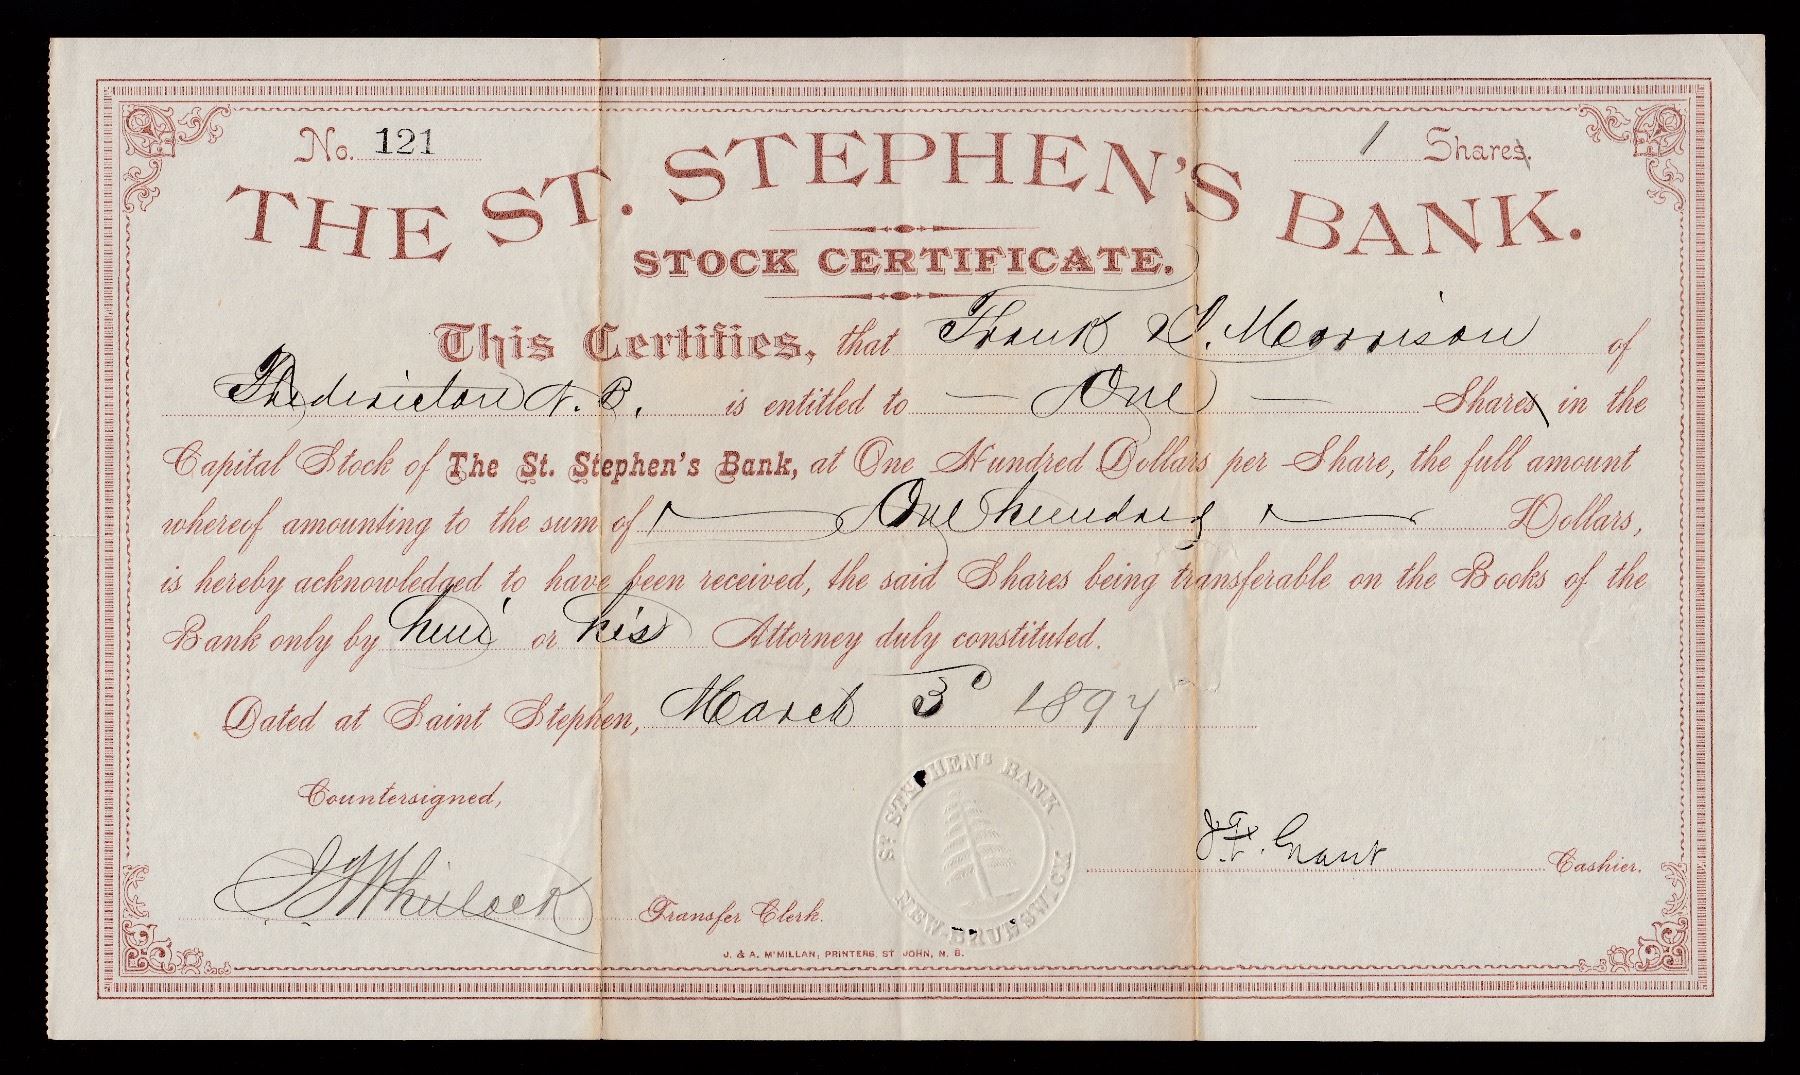 No. 121
1 Shares.
THE ST. STEPHEN'S BANK.
STOCK CERTIFICATE.
This Certifies, that Frank I. Morrison of
Fredericton N. B. is entitled to — One — Shares in the
Capital Stock of The St. Stephen's Bank, at One Hundred Dollars per Share, the full amount
whereof amounting to the sum of One hundred Dollars,
is hereby acknowledged to have been received, the said Shares being transferable on the Books of the
Bank only by him or his Attorney duly constituted.
Dated at Saint Stephen, March 3d 1894
Countersigned,
J. F. Grant Cashier.
Whitlock Transfer Clerk.
ST STEPHENS BANK
NEW-BRUNSWICK
J. & A. M'MILLAN, PRINTERS, ST JOHN, N. B.